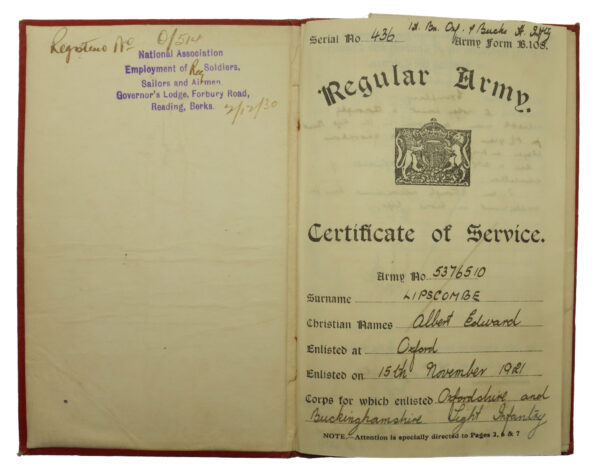 Registered No O/514
National Association
Employment of Reg Soldiers,
Sailors and Airmen
Governor's Lodge, Forbury Road,
Reading, Berks.
2/12/30
1st. Bn. Oxf. & Bucks Lt. Infy
Serial No. 436 Army Form B.108.
Regular Army.
Certificate of Service.
Army No. 5376510
Surname LIPSCOMBE
Christian Names Albert Edward
Enlisted at Oxford
Enlisted on 15th November 1921
Corps for which enlisted Oxfordshire and
Buckinghamshire Light Infantry
NOTE.—Attention is specially directed to Pages 2, 6 & 7